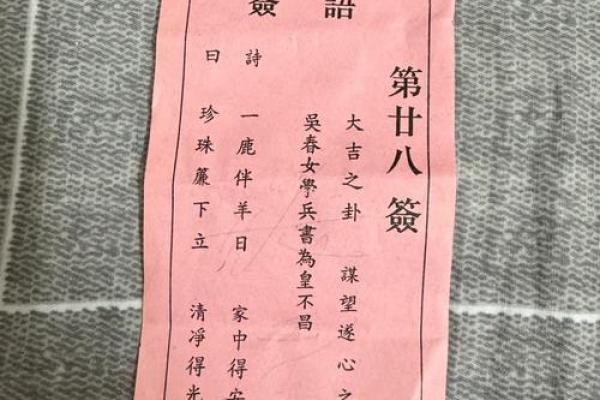 簽語
第廿八簽
大吉之卦 謀望遂心之
吳春女學兵書為皇不昌
詩曰
一鹿伴羊日 家中得安
珍珠簾下立 清凈得光